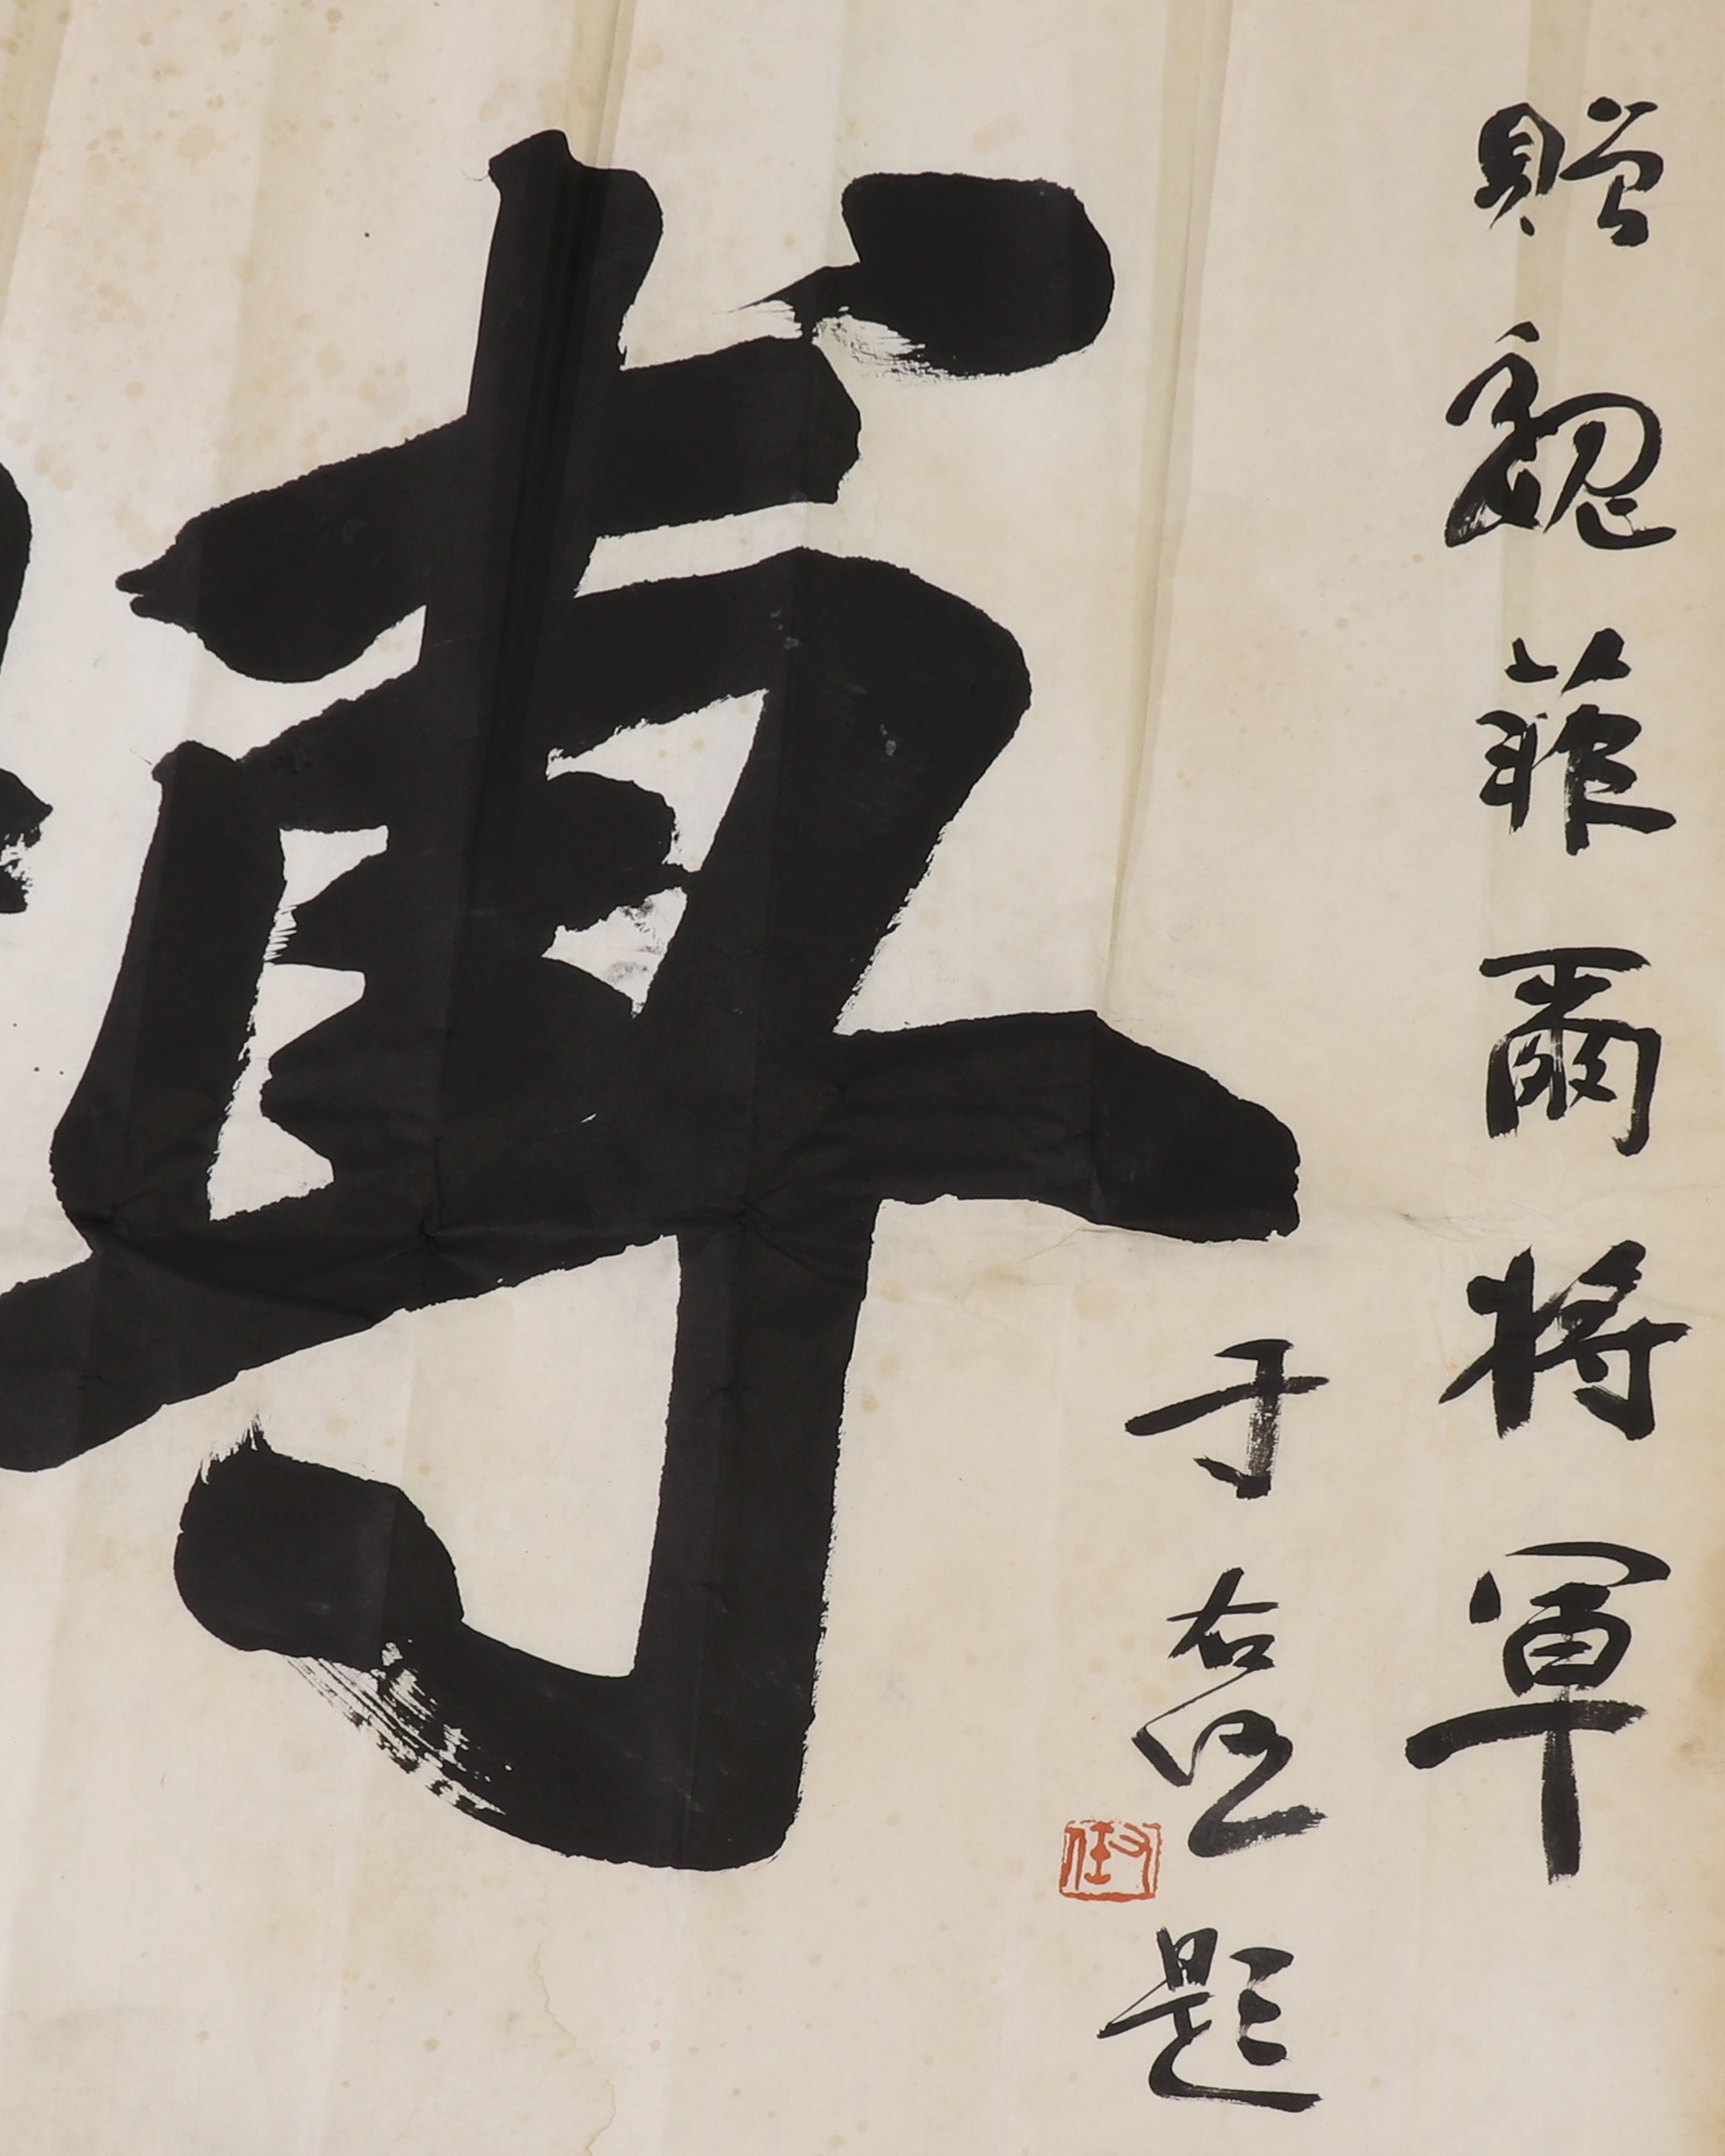 贈魏菲爾將軍
于右任題
右任
博